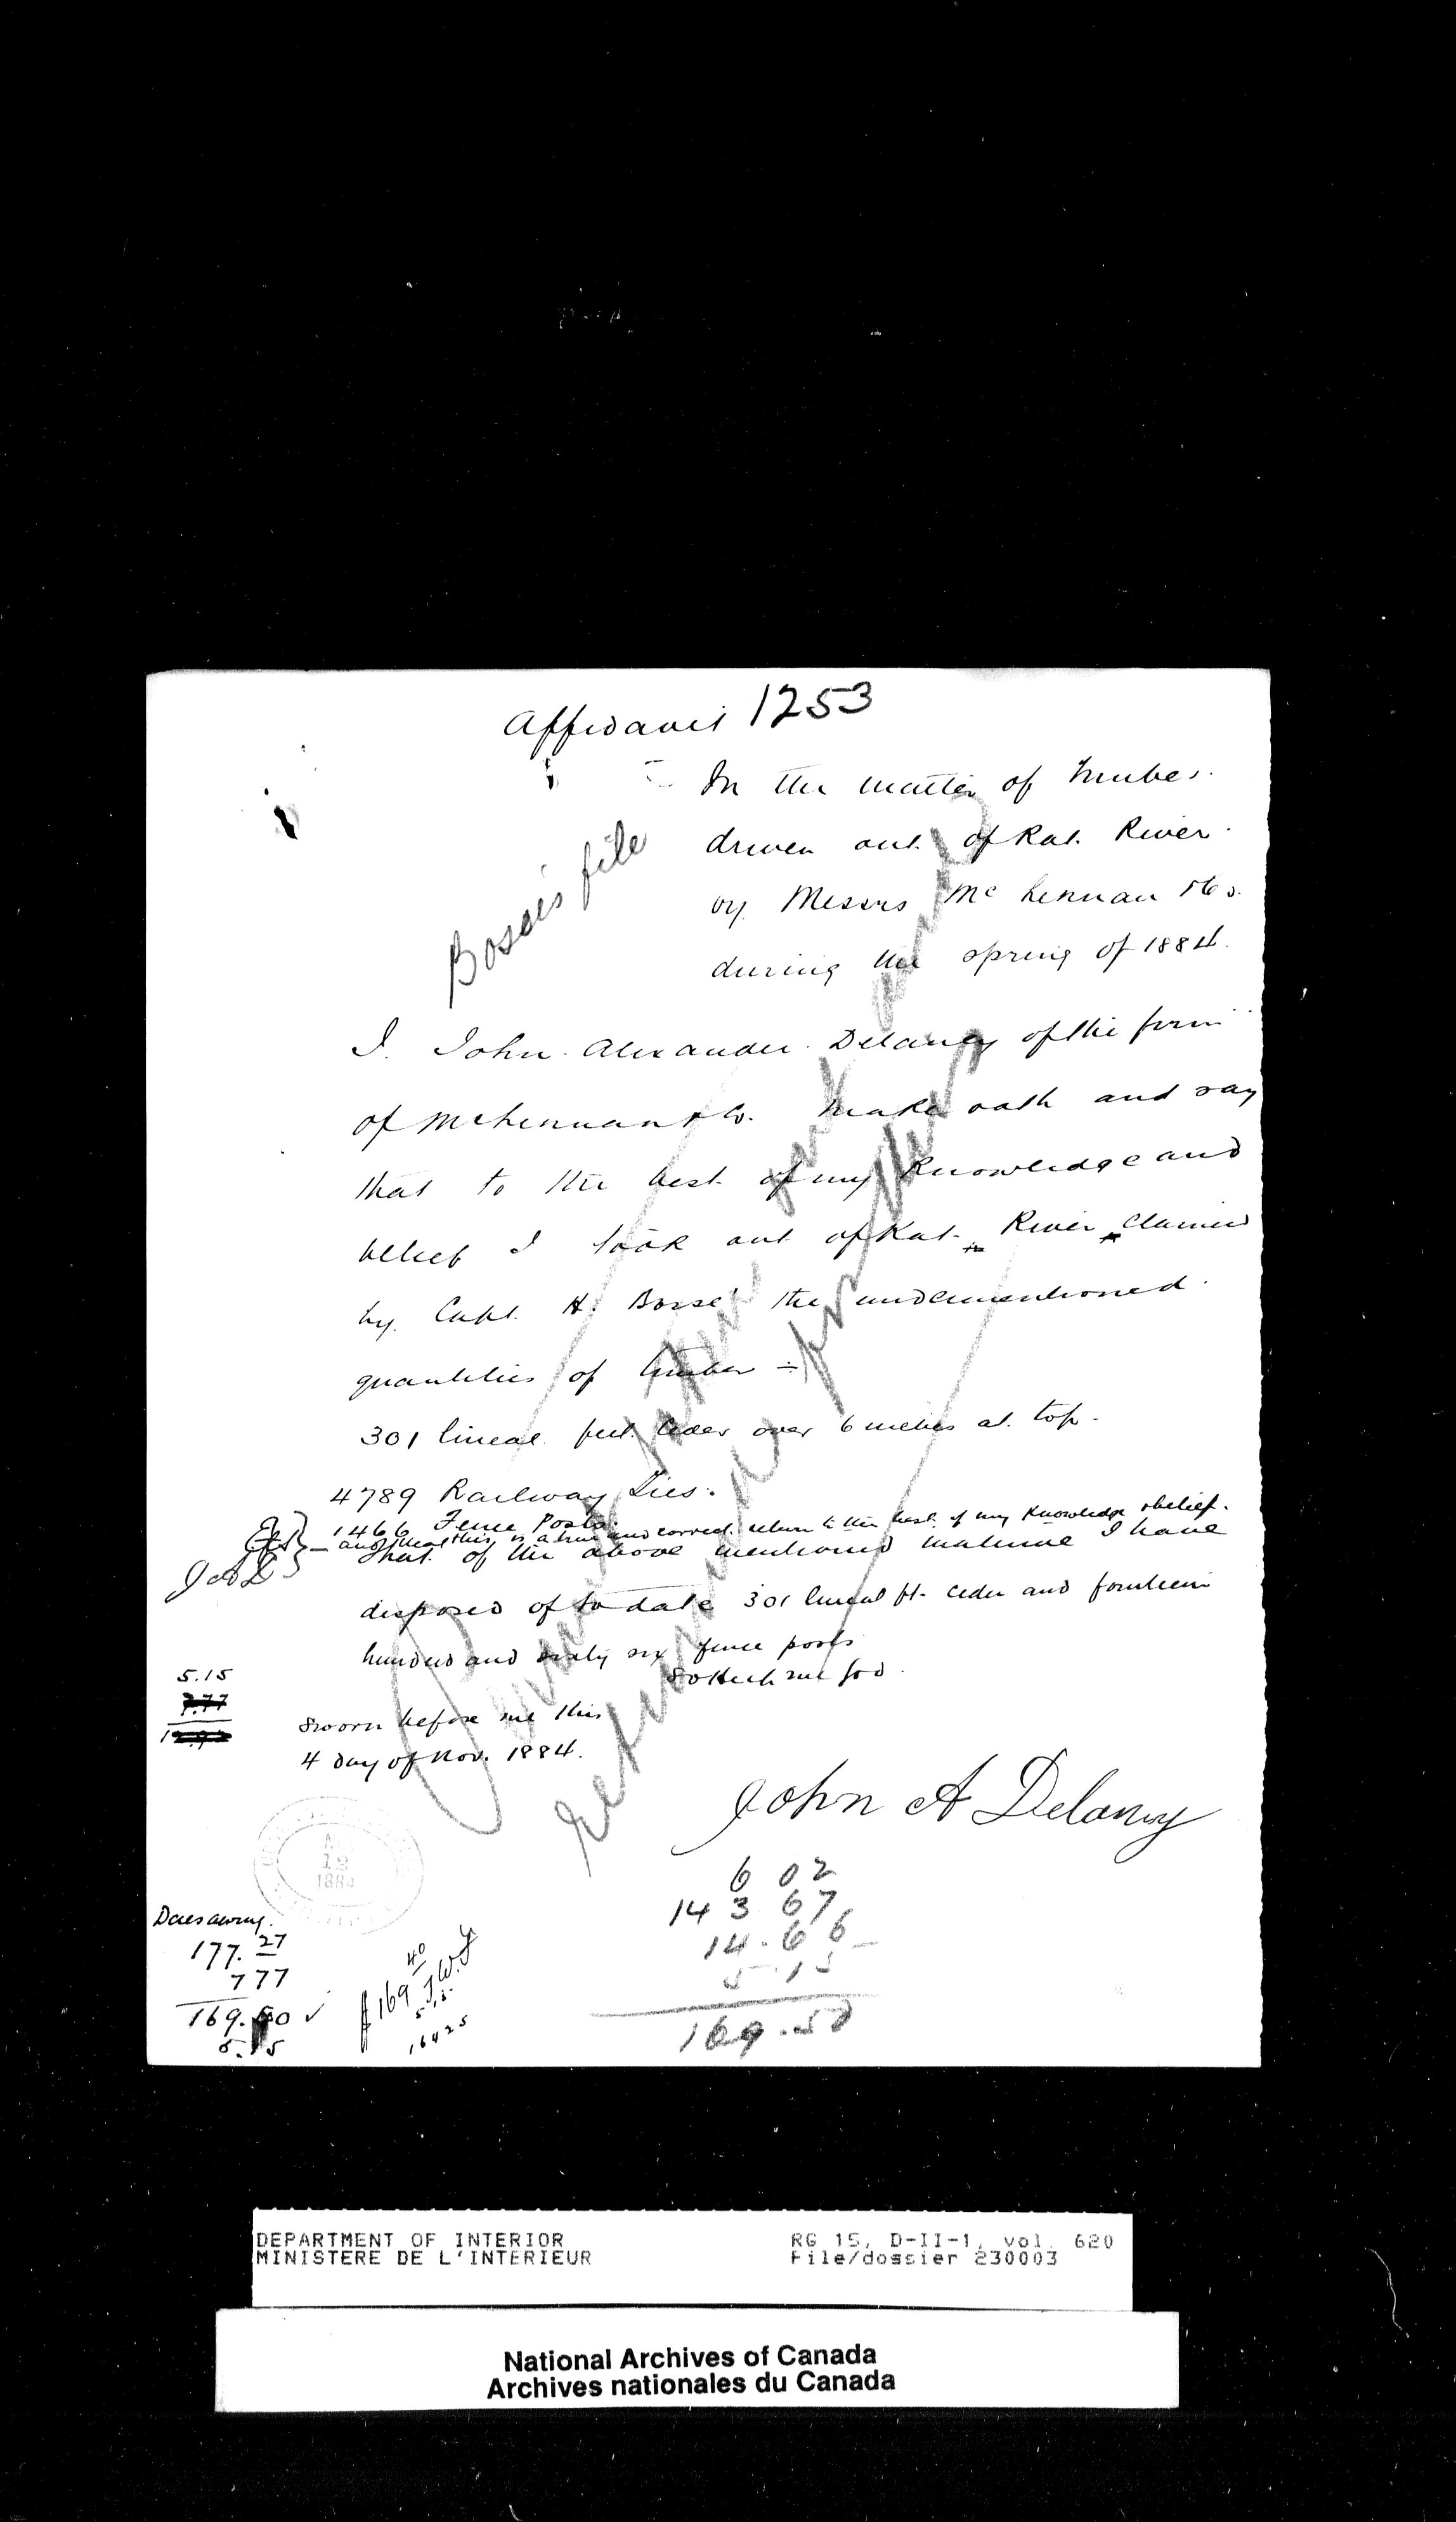 Affidavit 1253
In the matter of Timber
driven out of Rat River
by Messrs McLennan & Co.
during the spring of 1884.
Bosse's file
I John Alexander Delaney of the firm
of McLennan & Co. make oath and say
that to the best of my knowledge and
belief I took out of Rat River claimed
by Capt. H. Bosse' the undermentioned
quantities of timber ÷
301 lineal feet Ceder over 6 inches at top.
4789 Railway Ties.
1466 Fence Posts.
and that this is a true and correct return to the best of my knowledge & belief.
That of the above mentioned material I have
JAD
disposed of to date 301 lineal ft. Ceder and fourteen
hundred and sixty six fence posts
So Help me God.
5.15
7.77
12.92
Sworn before me this
4 day of Nov. 1884.
John A Delaney
1884
6 02
143 67
14.66
5 15
169.50
Dues owing.
177.27
7 77
169.50 ✓
5.15
$169 40
5.15
164 25
DEPARTMENT OF INTERIOR
MINISTERE DE L'INTERIEUR
RG 15, D-II-1, vol. 620
File/dossier 230003
National Archives of Canada
Archives nationales du Canada